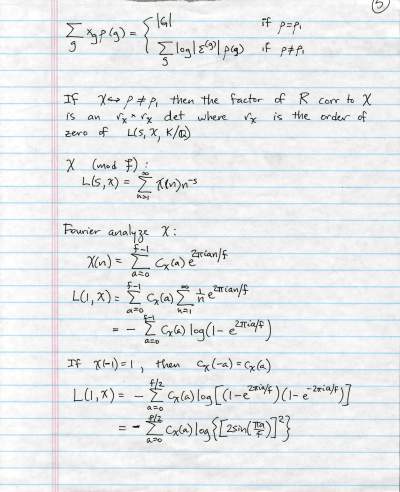 5
∑_g x_g ρ(g) = { |G| if ρ=ρ₁
∑_g log|ε^(g)| ρ(g) if ρ≠ρ₁
If χ↔ρ≠ρ₁ then the factor of R corr to χ
is an r_χ × r_χ det where r_χ is the order of
zero of L(s, χ, K/Q)
χ (mod f):
L(s, χ) = ∑_{n=1}^∞ χ(n)n^{-s}
Fourier analyze χ:
χ(n) = ∑_{a=0}^{f-1} c_χ(a) e^{2πian/f}
L(1, χ) = ∑_{a=0}^{f-1} c_χ(a) ∑_{n=1}^∞ 1/n e^{2πian/f}
= - ∑_{a=0}^{f-1} c_χ(a) log(1 - e^{2πia/f})
If χ(-1)=1, then c_χ(-a) = c_χ(a)
L(1, χ) = - ∑_{a=0}^{f/2} c_χ(a) log[(1-e^{2πia/f})(1-e^{-2πia/f})]
= - ∑_{a=0}^{f/2} c_χ(a) log{[2sin(πa/f)]²}